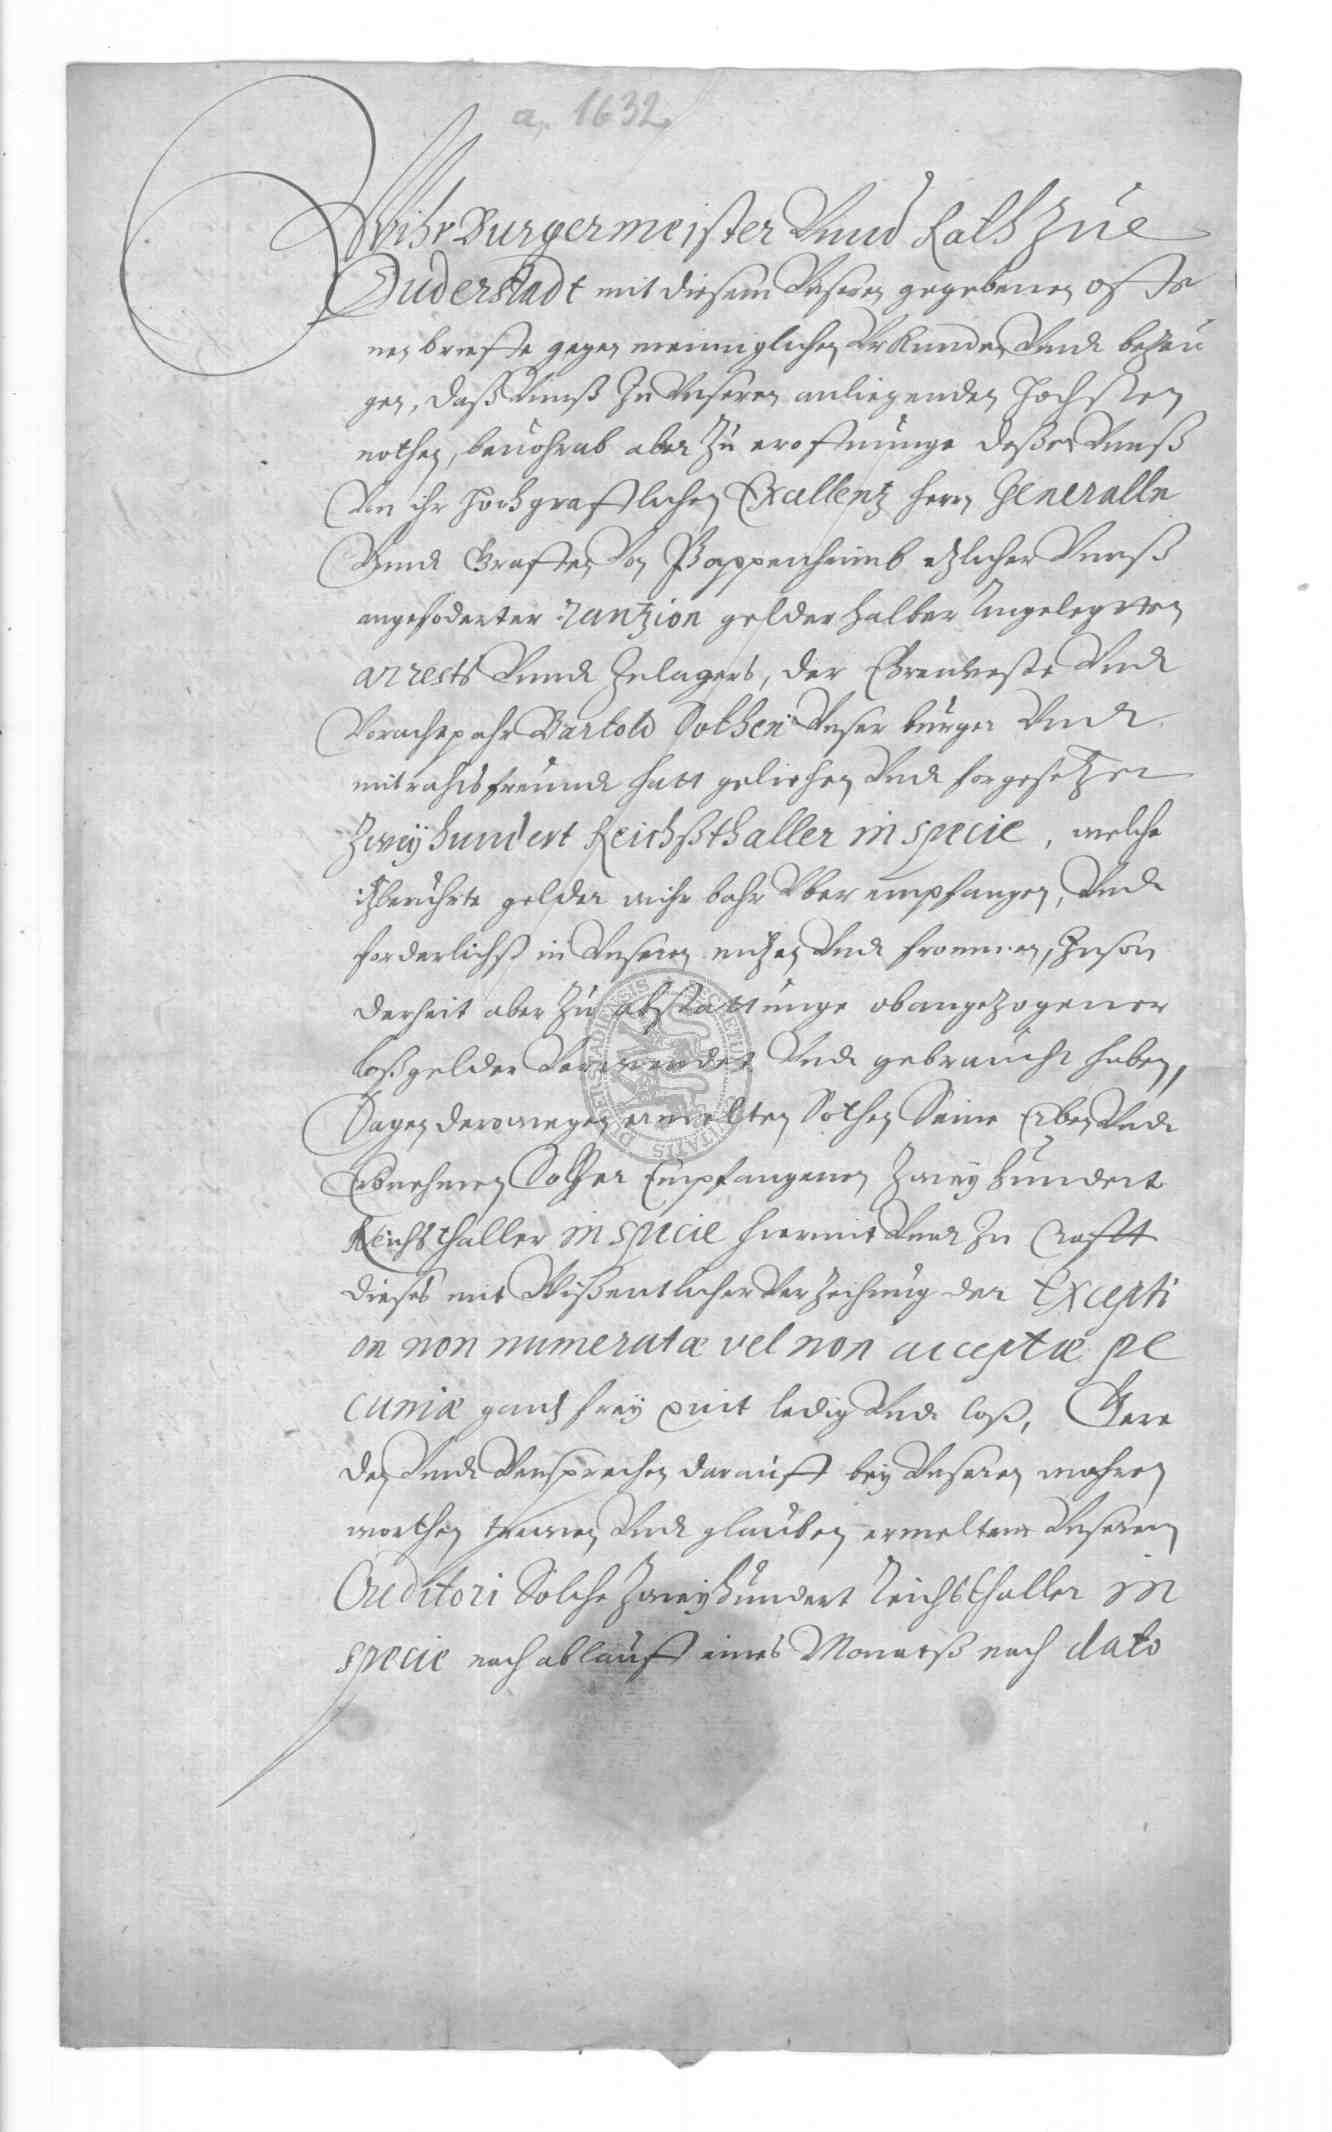 a. 1632
Wihr Burgermeister Vnnd Rath Zue
Duderstadt mit diesem Vnseren gegebenen offe
nen brieffe gegen menniglichen Vrkunden Vnde bezeu
gen, daß Vnnß Zu Vnseren anliegenden hochsten
nothen, beuohrab aber Zu eroffnunge deßen Vnnß
Von ihr Hochgrafflichen Excellentz herrn Generalln
Vnnd Graffen Von Pappenheimb etzlicher Vnnß
angefoderter rantzion gelder halber angelegten
arrests Vnnd Inlagers, der Ehrenveste Vnde
Vorachtpahr Bartold Sothen Vnser burger Vnde
mitrahtsfreunde hatt geliehen Vnde forgesetzet
Zweyhundert Reichßthaller in specie, welche
itzberührte gelder wihr bahr Vber empfangen, Vnde
forderlichst in Vnseren nutzen Vnde frommen, Inson
derheit aber Zu abstattunge obangezogener
loßgelder Verwendet Vnde gebraucht haben,
Sagen derowegen ermelten Sothen Seine Erben Vnde
Erbnehmen Solcher Empfangenen Zweyhundert
Reichsthaller in specie hiermit Vnd in Crafft
dieses mit Wißentlicher Verzeihung der Excepti
on non numeratæ vel non acceptæ pe
cuniæ gantz frey quit ledig Vnde loß, Gere
den Vnde Versprechen darauff bey Vnseren wahren
worthen trewen Vnde glauben ermeltem Vnserem
Creditori Solche Zweyhundert Reichsthaller in
specie nach ablauff eines Monatß nach dato
SECRETUM CIVITATIS DUDERSTADIENSIS